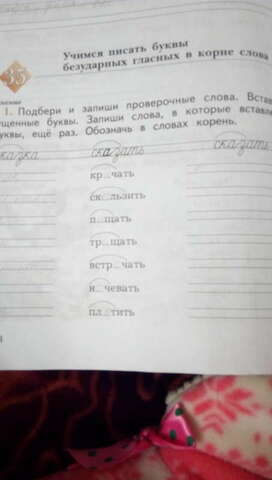 Учимся писать буквы
безударных гласных в корне слова
35
1. Подбери и запиши проверочные слова. Встав
ущенные буквы. Запиши слова, в которые вставле
уквы, ещё раз. Обозначь в словах корень.
казка сказать сказать
кр...чать
ск...льзить
п...щать
тр...щать
встр...чать
н...чевать
пл...тить